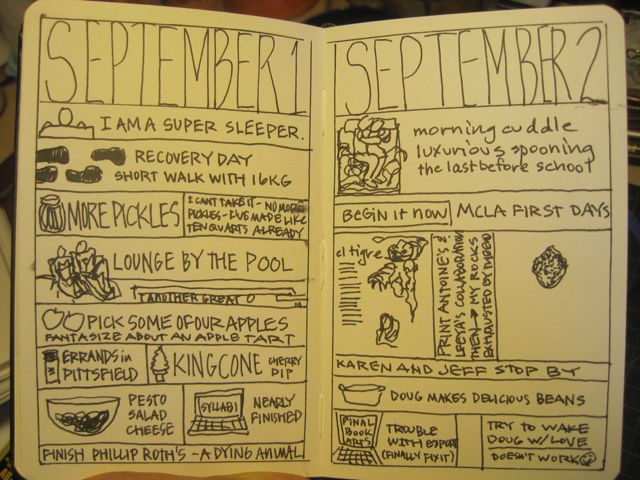 SEPTEMBER 1
I AM A SUPER SLEEPER.
RECOVERY DAY
SHORT WALK WITH 16KG
MORE PICKLES
I CANT TAKE IT - NO MORE
PICKLES - I'VE MADE LIKE
TEN QUARTS ALREADY
LOUNGE BY THE POOL
ANOTHER GREAT
PICK SOME OF OUR APPLES
FANTASIZE ABOUT AN APPLE TART
ERRANDS in
PITTSFIELD
KING CONE
CHERRY
DIP
PESTO
SALAD
CHEESE
SYLLABI
NEARLY
FINISHED
FINISH PHILLIP ROTH'S - A DYING ANIMAL
SEPTEMBER 2
morning cuddle
luxurious spooning
the last before school
BEGIN it NOW
MCLA FIRST DAYS
el tigre
PRINT ANTOINE'S &
LEEYA'S COLLABORATION
THEN → MY ROCKS
EXHAUSTED BY
KAREN AND JEFF STOP BY
DOUG MAKES DELICIOUS BEANS
FINAL
BOOK
ARTS
TROUBLE
WITH EXPORT
(FINALLY FIX IT)
TRY TO WAKE
DOUG W/ LOVE
DOESN'T WORK